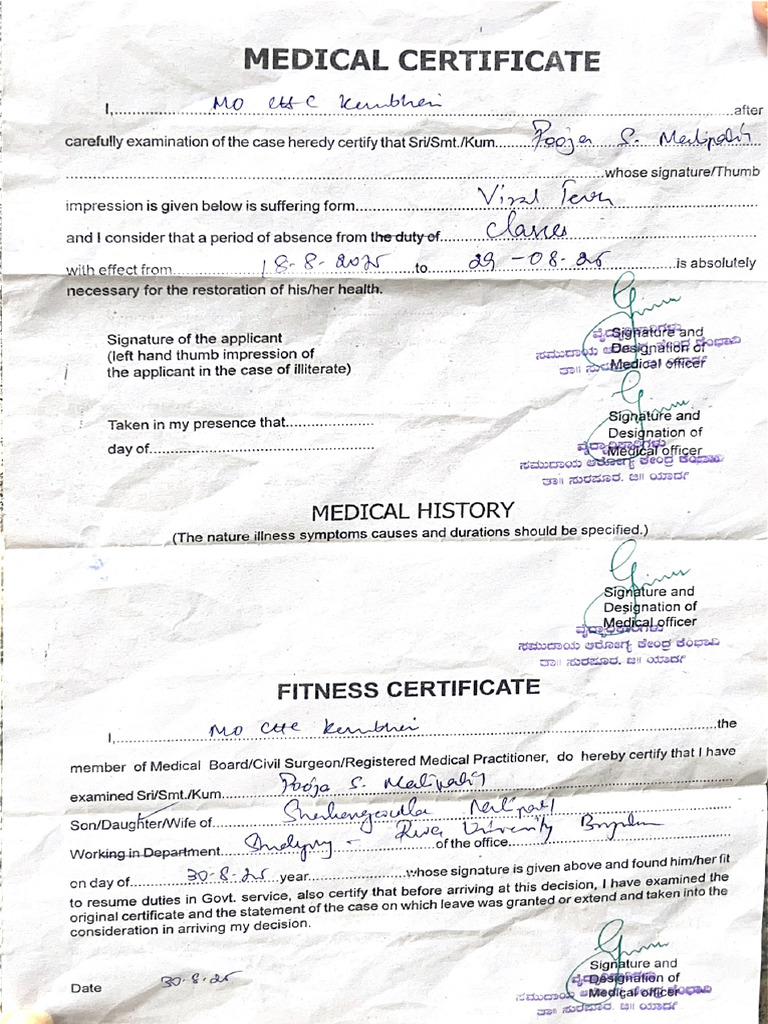 MEDICAL CERTIFICATE
I,..........MO CHC Kembhavi..........after
carefully examination of the case heredy certify that Sri/Smt./Kum...Pooja S. Malipatil
..........whose signature/Thumb
impression is given below is suffering form..........Viral Fever
and I consider that a period of absence from the duty of..........Classes
with effect from..........18-8-2025..........to..........29-08-25..........is absolutely
necessary for the restoration of his/her health.
Signature of the applicant
(left hand thumb impression of
the applicant in the case of illiterate)
Signature and
Designation of
Medical officer
ವೈದ್ಯಾಧಿಕಾರಿಗಳು
ಸಮುದಾಯ ಆರೋಗ್ಯ ಕೇಂದ್ರ ಕೆಂಭಾವಿ
ತಾ|| ಸುರಪೂರ. ಜಿ|| ಯಾದಗಿರಿ
Taken in my presence that..........
day of..........
Signature and
Designation of
Medical officer
ವೈದ್ಯಾಧಿಕಾರಿಗಳು
ಸಮುದಾಯ ಆರೋಗ್ಯ ಕೇಂದ್ರ ಕೆಂಭಾವಿ
ತಾ|| ಸುರಪೂರ. ಜಿ|| ಯಾದಗಿರಿ
MEDICAL HISTORY
(The nature illness symptoms causes and durations should be specified.)
Signature and
Designation of
Medical officer
ವೈದ್ಯಾಧಿಕಾರಿಗಳು
ಸಮುದಾಯ ಆರೋಗ್ಯ ಕೇಂದ್ರ ಕೆಂಭಾವಿ
ತಾ|| ಸುರಪೂರ. ಜಿ|| ಯಾದಗಿರಿ
FITNESS CERTIFICATE
I,..........MO CHC Kembhavi..........the
member of Medical Board/Civil Surgeon/Registered Medical Practitioner, do hereby certify that I have
examined Sri/Smt./Kum..........Pooja S. Malipatil
Son/Daughter/Wife of..........Malipatil
Working in Department..........Studying - Reva University of the office..........
on day of..........30-8-25 year..........whose signature is given above and found him/her fit
to resume duties in Govt. service, also certify that before arriving at this decision, I have examined the
original certificate and the statement of the case on which leave was granted or extend and taken into the
consideration in arriving my decision.
Date 30-8-25
Signature and
Designation of
Medical officer
ವೈದ್ಯಾಧಿಕಾರಿಗಳು
ಸಮುದಾಯ ಆರೋಗ್ಯ ಕೇಂದ್ರ ಕೆಂಭಾವಿ
ತಾ|| ಸುರಪೂರ. ಜಿ|| ಯಾದಗಿರಿ